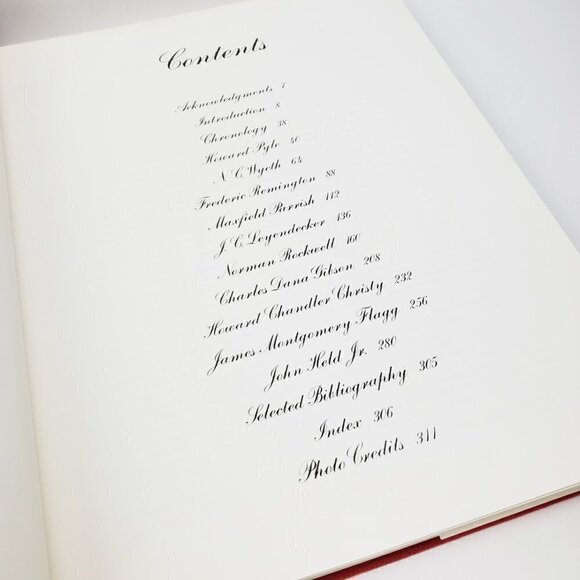 Contents
Acknowledgments 7
Introduction 8
Chronology 38
Howard Pyle 40
N. C. Wyeth 64
Frederic Remington 88
Maxfield Parrish 112
J. C. Leyendecker 136
Norman Rockwell 160
Charles Dana Gibson 208
Howard Chandler Christy 232
James Montgomery Flagg 256
John Held Jr. 280
Selected Bibliography 305
Index 306
Photo Credits 311